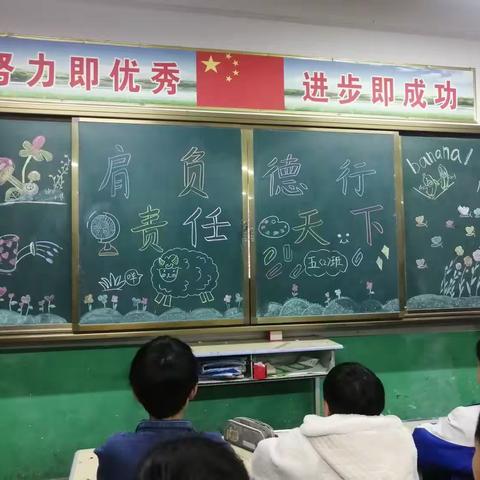 努力即优秀 进步即成功
肩负 德行
责任 天下
banana!